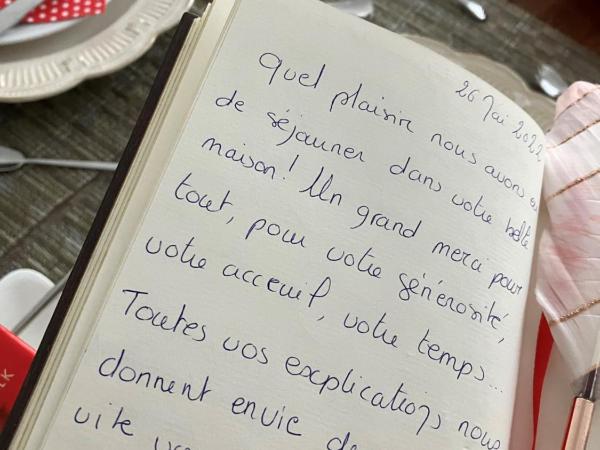 26 Mai 2022
Quel plaisir nous avons eu
de séjourner dans votre belle
maison! Un grand merci pour
tout, pour votre générosité,
votre acceuil, votre temps...
Toutes vos explications nous
donnent envie de
vite
LK